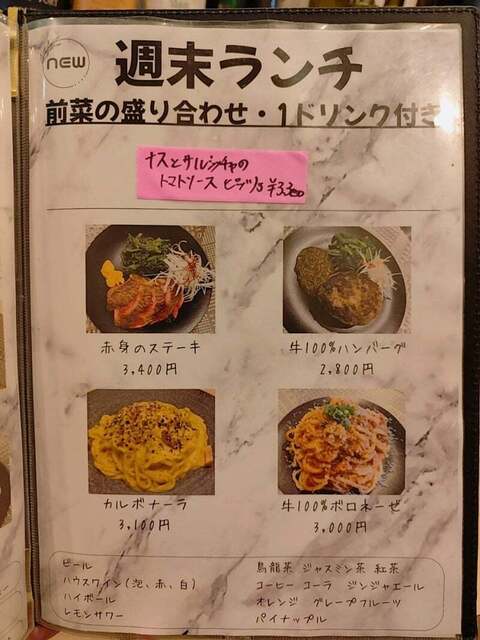 NEW
週末ランチ
前菜の盛り合わせ・1ドリンク付き
ナスとサルシッチャの
トマトソース ピチ ¥3,300
赤身のステーキ
3,400円
牛100%ハンバーグ
2,800円
カルボナーラ
3,100円
牛100%ボロネーゼ
3,000円
ビール
ハウスワイン(泡、赤、白)
ハイボール
レモンサワー
烏龍茶 ジャスミン茶 紅茶
コーヒー コーラ ジンジャエール
オレンジ グレープフルーツ
パイナップル